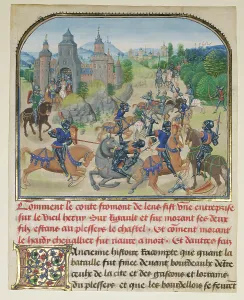 Comment le conte fromont de lens fist une entreprise
sur le vieil hervy Sur Rigault et sur morant ses deux
filz estans au plesseys le chastel Et coment morant
le hardy chevallier fut navre a mort Et dautres fais
Ancienne histoire racompte que quant la
bataille fut finee devant bourdeaulx dentre
ceulx de la cite et des gascons et lorrains
du plesseys et que les bourdellois se furent